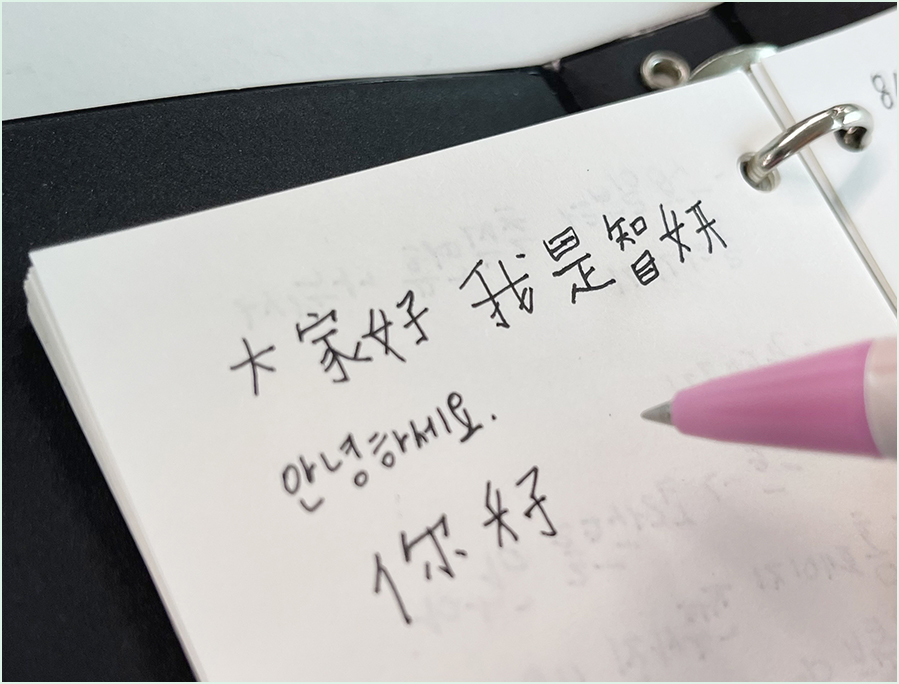 大家好 我是智妍
안녕하세요.
你好